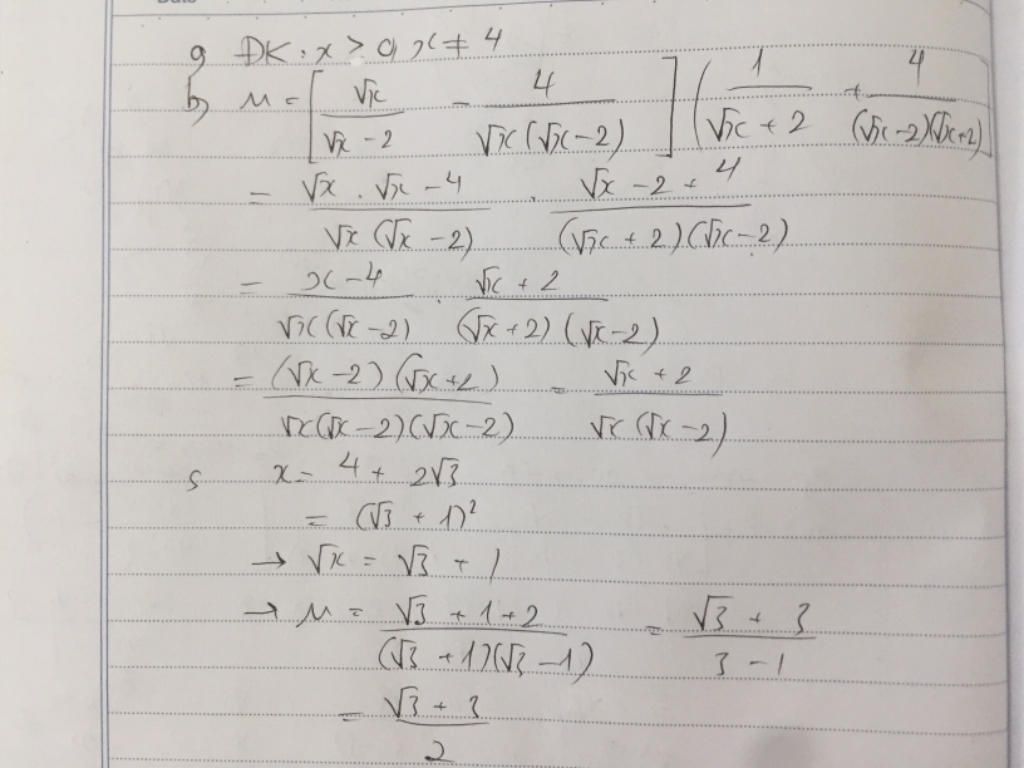 a, ĐK: x > 0, x ≠ 4
b, M = [√x/(√x - 2) - 4/(√x(√x - 2))] (1/(√x + 2) + 4/((√x - 2)(√x + 2)))
= (√x . √x - 4)/(√x(√x - 2)) . (√x - 2 + 4)/((√x + 2)(√x - 2))
= (x - 4)/(√x(√x - 2)) . (√x + 2)/((√x + 2)(√x - 2))
= ((√x - 2)(√x + 2))/(√x(√x - 2)(√x - 2)) = (√x + 2)/(√x(√x - 2))
c, x = 4 + 2√3
= (√3 + 1)²
→ √x = √3 + 1
→ M = (√3 + 1 + 2)/((√3 + 1)(√3 - 1)) = (√3 + 3)/(3 - 1)
= (√3 + 3)/2